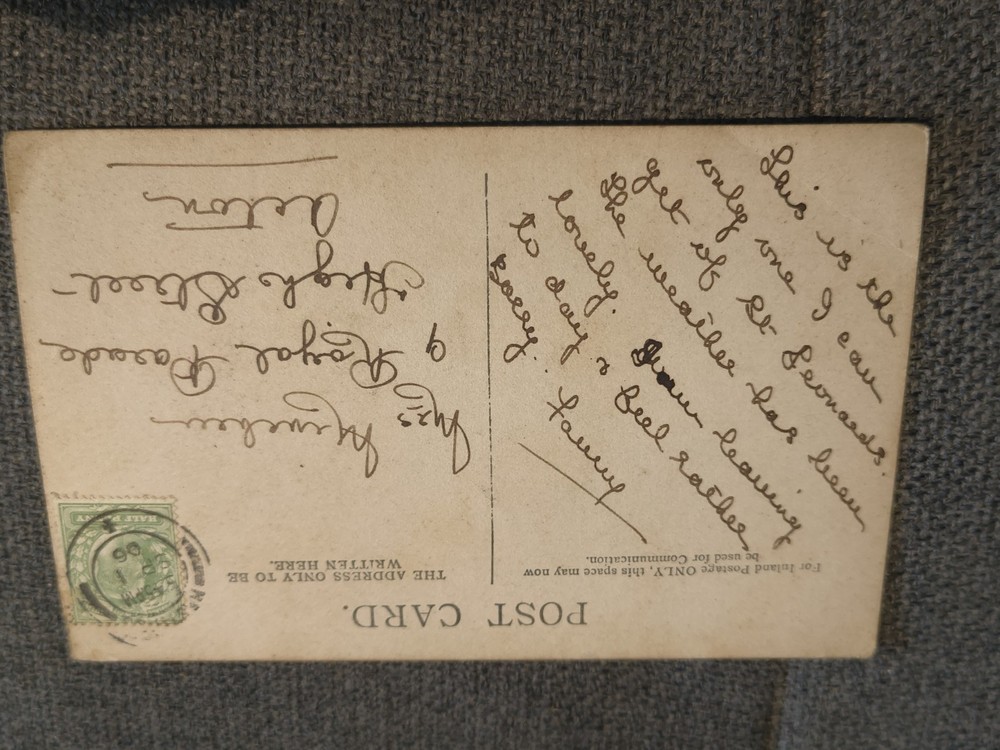 POST CARD.
For Inland Postage ONLY, this space may now
be used for Communication.
THE ADDRESS ONLY TO BE
WRITTEN HERE.
HALF PENNY
This is the
only one I can
get of St Leonards.
The weather has been
lovely. I am leaving
to day & feel rather
sorry.
Fanny
Mrs
9 Royal Parade
High Street
Acton